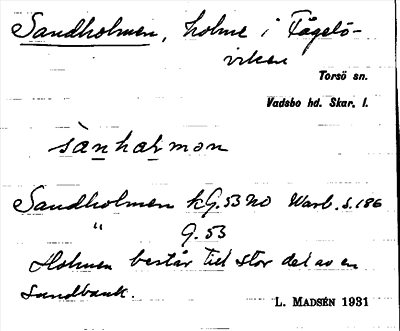 Sandholmen, holme i Fågelö-
viken
Torsö sn.
Vadsbo hd. Skar. l.
sànhalmən
Sandholmen kG. 53 NO Warb. s. 186
" G. 53
Holmen består till stor del av en
sandbank.
L. MADSÉN 1931